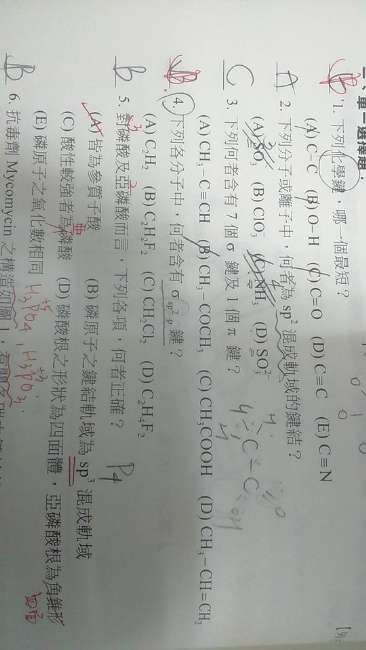 二、單一選擇題
B 1. 下列化學鍵，哪一個最短？
(A) C－C (B) O－H (C) C＝O (D) C≡C (E) C≡N
A 2. 下列分子或離子中，何者為 sp² 混成軌域的鍵結？
(A) SO₃ (B) ClO₃⁻ (C) NH₃ (D) SO₃²⁻
C 3. 下列何者含有 7 個 σ 鍵及 1 個 π 鍵？
(A) CH₃－C≡CH (B) CH₃－COCH₃ (C) CH₃COOH (D) CH₃－CH＝CH₂
B 4. 下列各分子中，何者含有 σ sp²-p 鍵？
(A) C₂H₂ (B) C₂H₂F₂ (C) CH₂Cl₂ (D) C₂H₄F₂
B 5. 對磷酸及亞磷酸而言，下列各項，何者正確？
(A) 皆為參質子酸 (B) 磷原子之鍵結軌域為 sp³ 混成軌域
(C) 酸性較強者為磷酸 (D) 磷酸根之形狀為四面體，亞磷酸根為角錐形
(E) 磷原子之氧化數相同 H₃PO₄, H₃PO₃
B 6. 抗毒劑 Mycomycin 之構造如圖